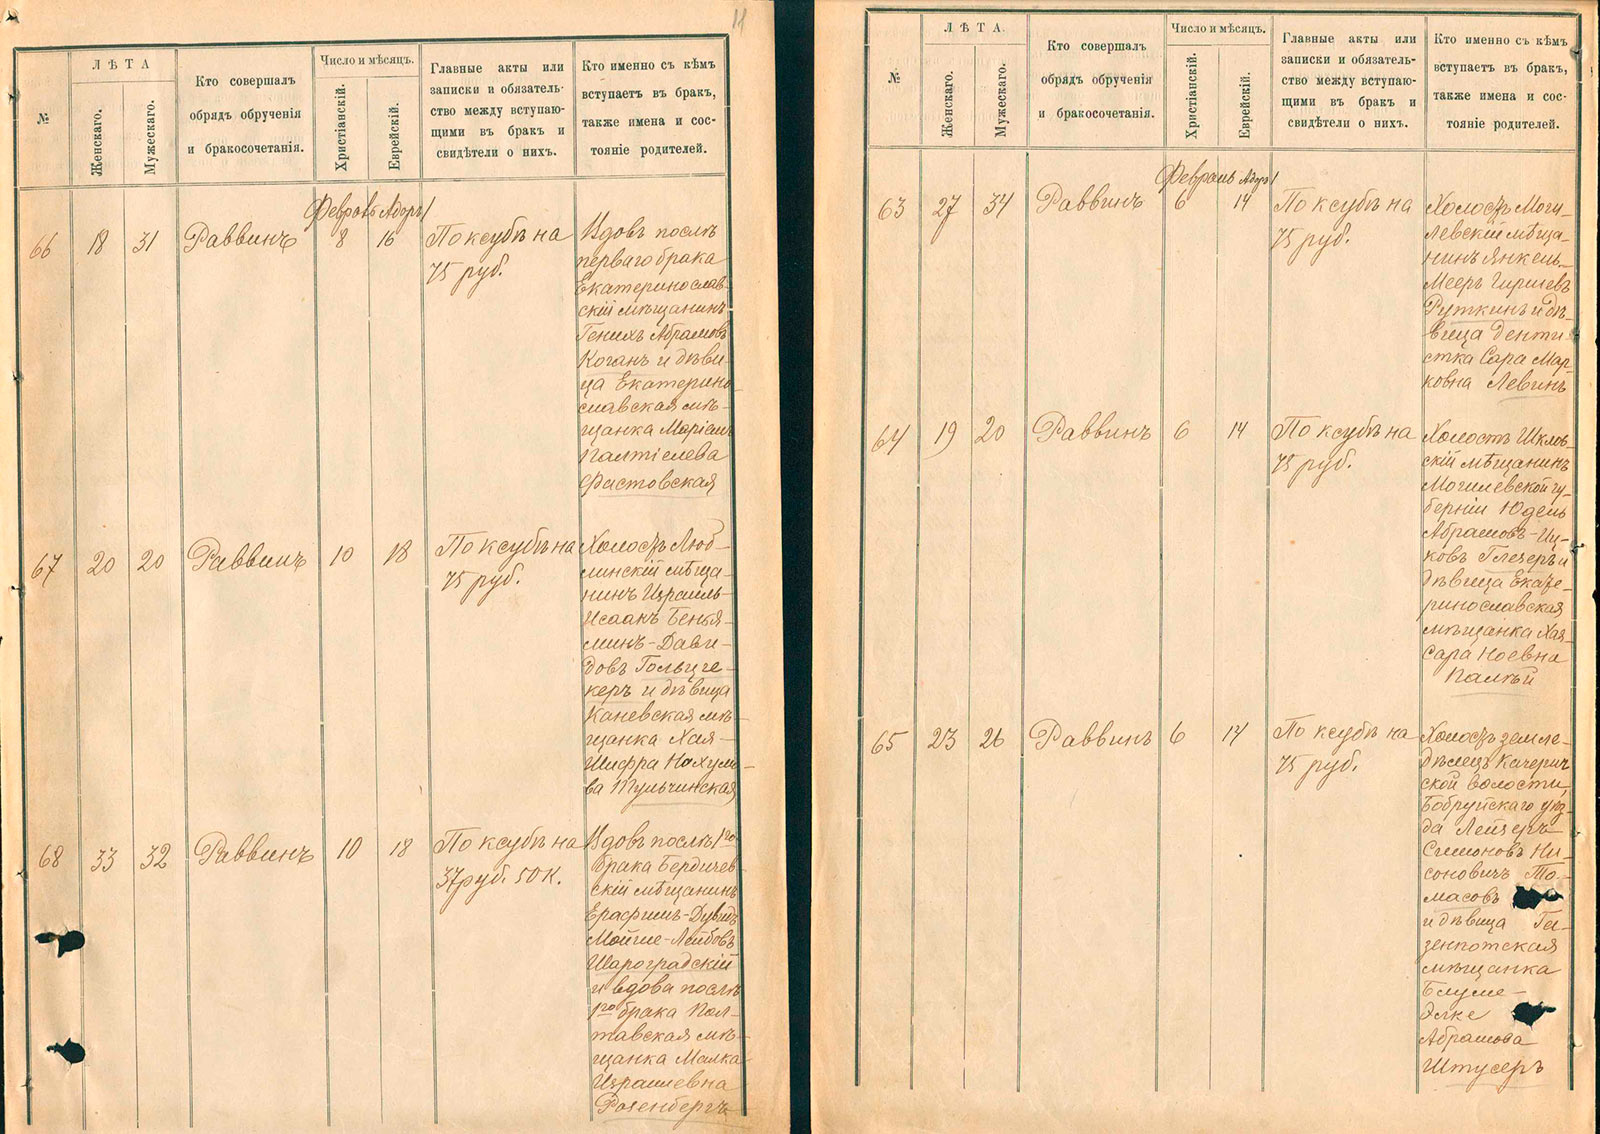 11
№
ЛѢТА
Женскаго.
Мужескаго.
Кто совершалъ
обрядъ обрученія
и бракосочетанія.
Число и мѣсяцъ.
Христіанскій.
Еврейскій.
Главные акты или
записки и обязатель-
ство между вступаю-
щими въ бракъ и
свидѣтели о нихъ.
Кто именно съ кѣмъ
вступаетъ въ бракъ,
также имена и сос-
тояніе родителей.
Февраль Адоръ I
66 18 31 Раввинъ 8 16
По ксубѣ на
75 руб.
Вдовъ послѣ
перваго брака
Екатеринослав-
скій мѣщанинъ
Генихъ Абрамовъ
Коганъ и дѣви-
ца Екатерино-
славская мѣ-
щанка Маріам
Палтіелева
Фастовская
67 20 20 Раввинъ 10 18
По ксубѣ на
75 руб.
Холостъ Люб-
линскій мѣща-
нинъ Израиль-
Исаакъ Бенья-
минъ-Дави-
довъ Гольцге-
керъ и дѣвица
Каневская мѣ-
щанка Хая-
Шифра Нахумо-
ва Тульчинская
68 33 32 Раввинъ 10 18
По ксубѣ на
37 руб. 50 к.
Вдовъ послѣ 1го
брака Бердичев-
скій мѣщанинъ
Ерафимъ-Дувидъ
Мойше-Лейбовъ
Шароградскій
и вдова послѣ
1го брака Пол-
тавская мѣ-
щанка Малка
Израилевна
Розенбергъ
№
ЛѢТА.
Женскаго.
Мужескаго.
Кто совершалъ
обрядъ обрученія
и бракосочетанія.
Число и мѣсяцъ.
Христіанскій.
Еврейскій.
Главные акты или
записки и обязатель-
ство между вступаю-
щими въ бракъ и
свидѣтели о нихъ.
Кто именно съ кѣмъ
вступаетъ въ бракъ,
также имена и сос-
тояніе родителей.
Февраль Адоръ I
63 27 34 Раввинъ 6 14
По ксубѣ на
75 руб.
Холостъ Моги-
левскій мѣща-
нинъ Янкель-
Мееръ Гиршевъ
Руткинъ и дѣ-
вица денти-
стка Сара Мар-
ковна Левинъ
64 19 20 Раввинъ 6 14
По ксубѣ на
75 руб.
Холостъ Шклов-
скій мѣщанинъ
Могилевской гу-
берніи Юдель
Абрамовъ-Иц-
ковъ Глезеръ и
дѣвица Екате-
ринославская
мѣщанка Хая-
Сара Ноевна
Палѣй
65 23 26 Раввинъ 6 14
По ксубѣ на
75 руб.
Холостъ земле-
дѣлецъ Качерич-
ской волости,
Бобруйскаго уѣз-
да Лейзеръ
Симоновъ Ни-
соновичъ То-
масовъ
и дѣвица Га-
зенпотская
мѣщанка
Блуме-
Элке
Абрамова
Штусеръ